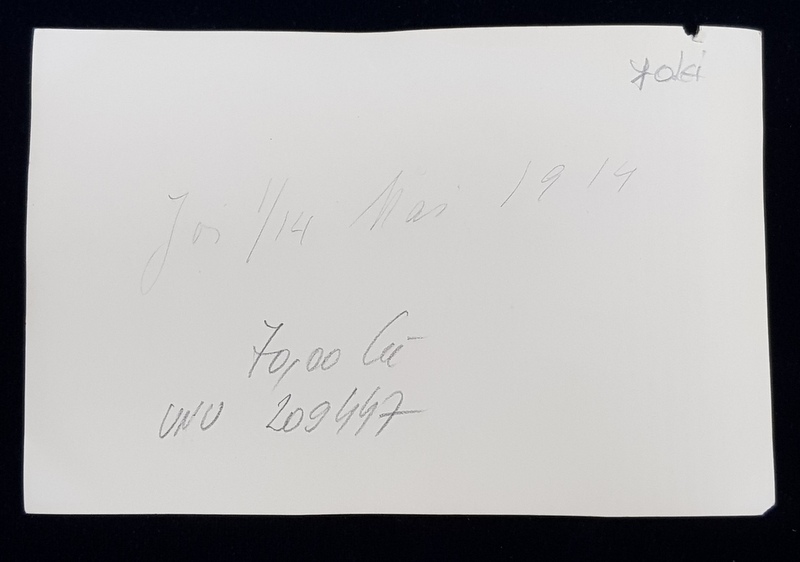 Joi 1/14 Mai 1914
70,00 Lei
UNU 209447